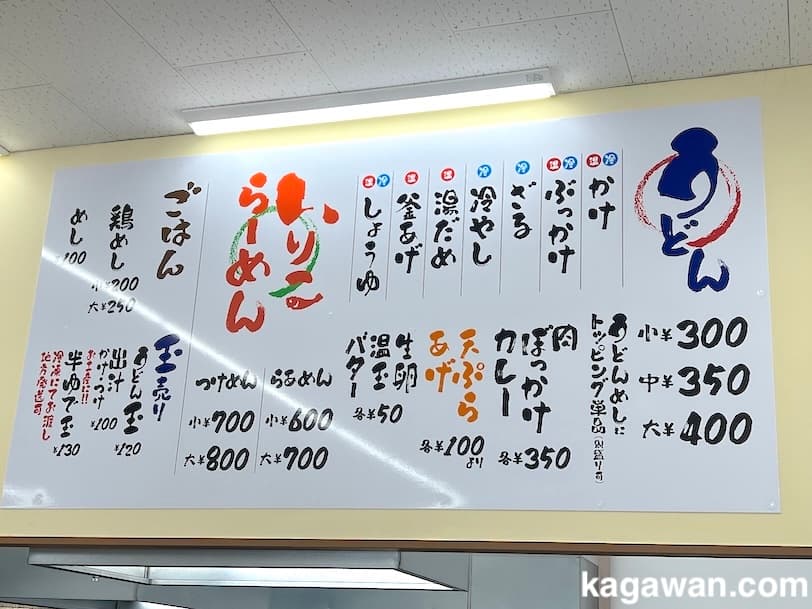 うどん
温 冷 かけ
温 冷 ぶっかけ
冷 ざる
冷 冷やし
温 湯だめ
温 釜あげ
温 冷 しょうゆ
小¥300
中¥350
大¥400
うどんめしに
トッピング単品(別盛り可)
肉
ぼっかけ
カレー
各¥350
天ぷら
あげ
各¥100より
生卵
温玉
バター
各¥50
いりこ
らーめん
らあめん
小¥600
大¥700
つけめん
小¥700
大¥800
ごはん
鶏めし
小¥200
大¥250
めし
¥100
玉売り
うどん玉
¥120
出汁
かけ・つけ
¥100
お土産に!!
半ゆで玉
¥130
冷凍にてお渡し
地方発送可
kagawan.com